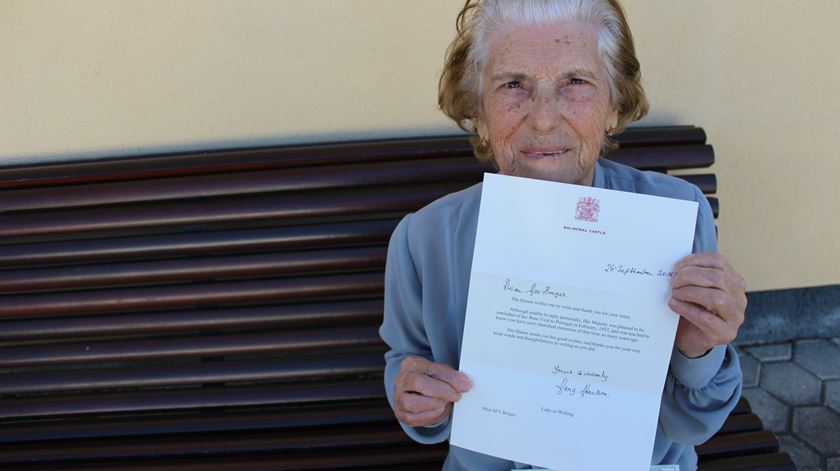 BALMORAL CASTLE
26 September 20
Dear
The Queen wishes me to write and thank you for your letter.
Although unable to reply personally, Her Majesty was pleased to be
reminded of her State Visit to Portugal in February, 1957, and was touched to
know you have such cherished memories of that time so many years ago.
The Queen sends you her good wishes, and thanks you for your very
kind words and thoughtfulness in writing as you did.
Yours sincerely
Miss M V Berger
Lady-in-Waiting